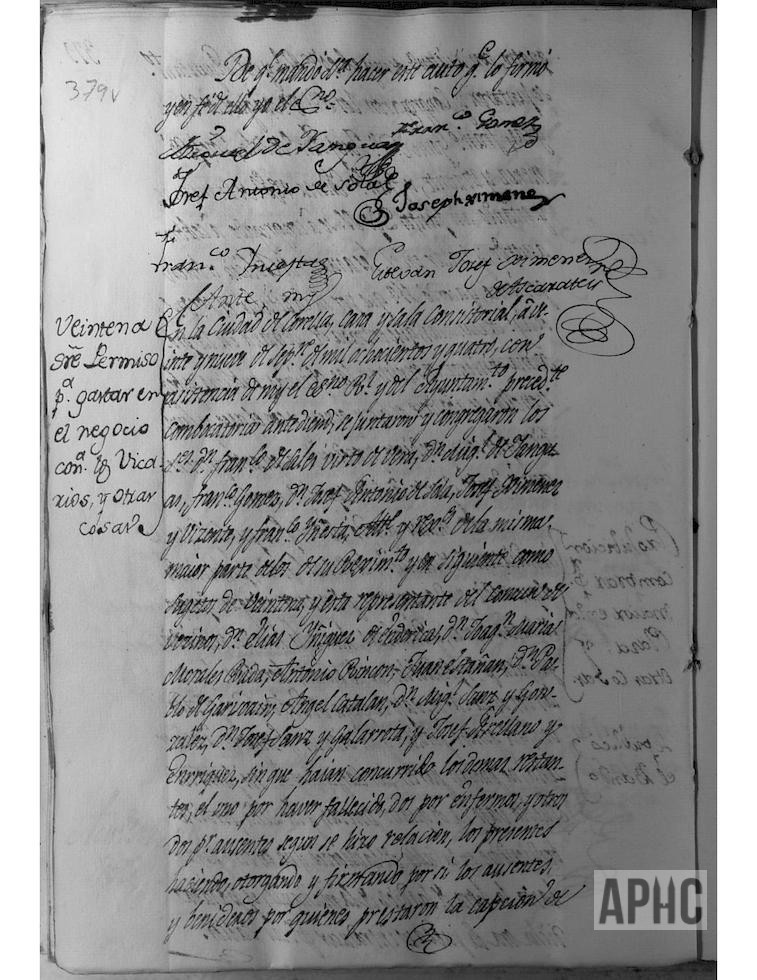 379v
De q.e mandó s.ria hacer este auto q.e lo firmó
y en fe de ello yo el Ess.no
Miguel de Sanguas
Fran.co Gomez
Josef Antonio de Sola
Joseph Ximenez
Fran.co Yñesta
Estevan Josef Ximenez
de Ascarateu
Ante my
Veintena
sre Permiso
p.a gastar en
el negocio
con.a los Vica
rios, y otras
cosas
En la Ciudad de Corella, casa y sala Consistorial, á ve-
inte y nueve de Sep.re de mil ochocientos y quatro, con
asistencia de my el Es.no R.l y del Ayuntam.to preced.te
combocatorias antediem, se juntaron y congregaron los
S.res D.n Fran.co de Sales Virto de Vera, D.n Mig.l de Sangu-
as, Fran.co Gomez, D.n Josef Antonio de Sola, Josef Ximenez
y Vizente, y Fran.co Yñesta, Alc.e y rex.es de la misma,
maior parte de los de su Regim.to y en siguiente como
sugetos de Veintena, y esta representante del Comun de
vezinos, D.n Elias Yñiguez de D.n Joaq.n Maria
Morales Rada, Antonio Rincon, Juan D.n Pa-
blo de Garivain, Angel Catalan, D.n Mig.l Sanz y Gon-
zalez, D.n Josef Sanz y Galarrota, y Josef Arellano y
Enrriquez, sin que haian concurrido los demas restan-
tes, el uno por haver fallecido, dos por enfermos, y otros
dos p.r ausentes segun se hizo relacion, los presentes
haciendo, otorgando y firmando por si los ausentes
y benideros por quienes prestaron la capcion de
APHC